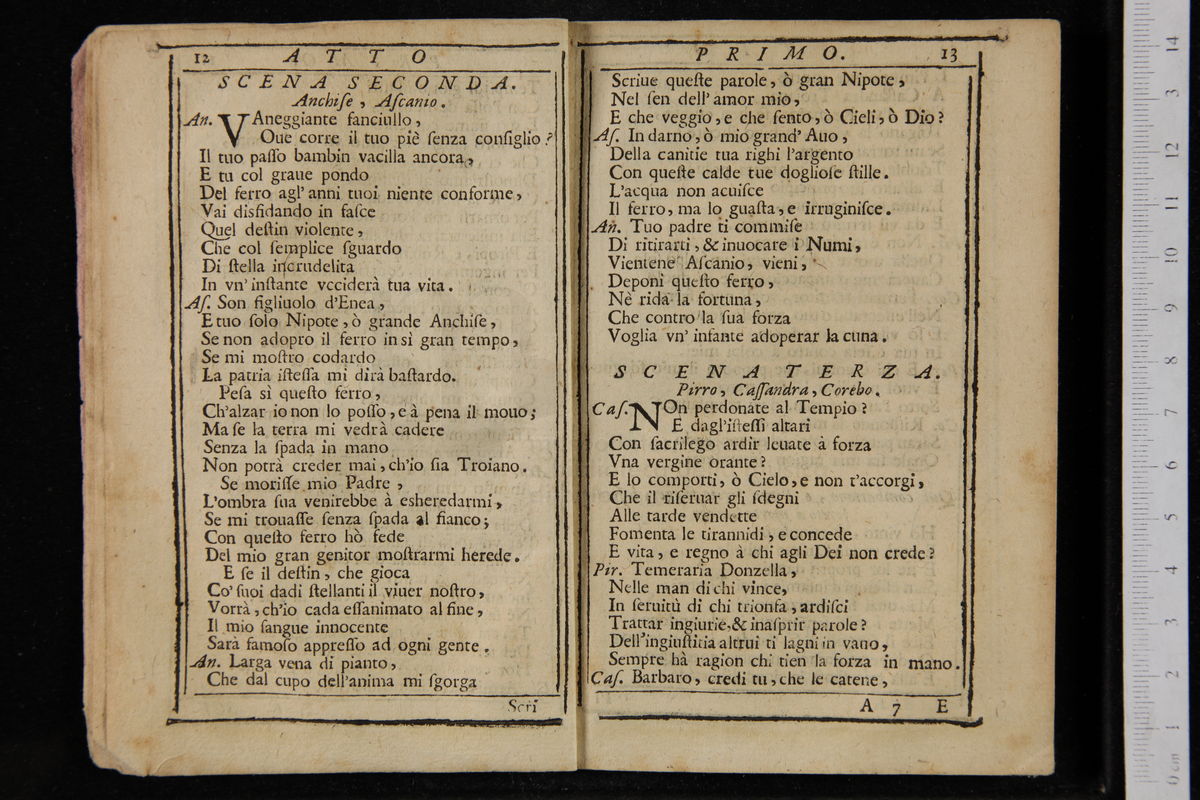 12 ATTO
SCENA SECONDA.
Anchiſe, Aſcanio.
An. VAneggiante fanciullo,
Oue corre il tuo piè ſenza conſiglio?
Il tuo paſſo bambin vacilla ancora,
E tu col graue pondo
Del ferro agl' anni tuoi niente conforme,
Vai disfidando in faſce
Quel deſtin violente,
Che col ſemplice ſguardo
Di ſtella incrudelita
In vn' inſtante vcciderà tua vita.
Aſ. Son figliuolo d'Enea,
E tuo ſolo Nipote, ò grande Anchiſe,
Se non adopro il ferro in sì gran tempo,
Se mi moſtro codardo
La patria iſteſſa mi dirà baſtardo.
Peſa sì queſto ferro,
Ch'alzar io non lo poſſo, e à pena il mouo;
Ma ſe la terra mi vedrà cadere
Senza la ſpada in mano
Non potrà creder mai, ch'io ſia Troiano.
Se moriſſe mio Padre,
L'ombra ſua venirebbe à eſheredarmi,
Se mi trouaſſe ſenza ſpada al fianco;
Con queſto ferro hò fede
Del mio gran genitor moſtrarmi herede.
E ſe il deſtin, che gioca
Co' ſuoi dadi ſtellanti il viuer noſtro,
Vorrà, ch'io cada eſſanimato al fine,
Il mio ſangue innocente
Sarà famoſo appreſſo ad ogni gente.
An. Larga vena di pianto,
Che dal cupo dell'anima mi ſgorga
Scri
PRIMO. 13
Scriue queſte parole, ò gran Nipote,
Nel ſen dell' amor mio,
E che veggio, e che ſento, ò Cieli, ò Dio?
Aſ. In darno, ò mio grand' Auo,
Della canitie tua righi l'argento
Con queſte calde tue doglioſe ſtille.
L'acqua non acuiſce
Il ferro, ma lo guaſta, e irruginiſce.
An. Tuo padre ti commiſe
Di ritirarti, & inuocare i Numi,
Vientene Aſcanio, vieni,
Deponi queſto ferro,
Nè rida la fortuna,
Che contro la ſua forza
Voglia vn' infante adoperar la cuna.
SCENA TERZA.
Pirro, Caſſandra, Corebo.
Caſ. NOn perdonate al Tempio?
E dagl'iſteſſi altari
Con ſacrilego ardir leuate à forza
Vna vergine orante?
E lo comporti, ò Cielo, e non t'accorgi,
Che il riſeruar gli ſdegni
Alle tarde vendette
Fomenta le tirannidi, e concede
E vita, e regno à chi agli Dei non crede?
Pir. Temeraria Donzella,
Nelle man di chi vince,
In ſeruitù di chi trionfa, ardiſci
Trattar ingiurie, & inaſprir parole?
Dell'ingiuſtitia altrui ti lagni in vano,
Sempre hà ragion chi tien la forza in mano.
Caſ. Barbaro, credi tu, che le catene,
A 7 E
0 cm 1 2 3 4 5 6 7 8 9 10 11 12 3 14